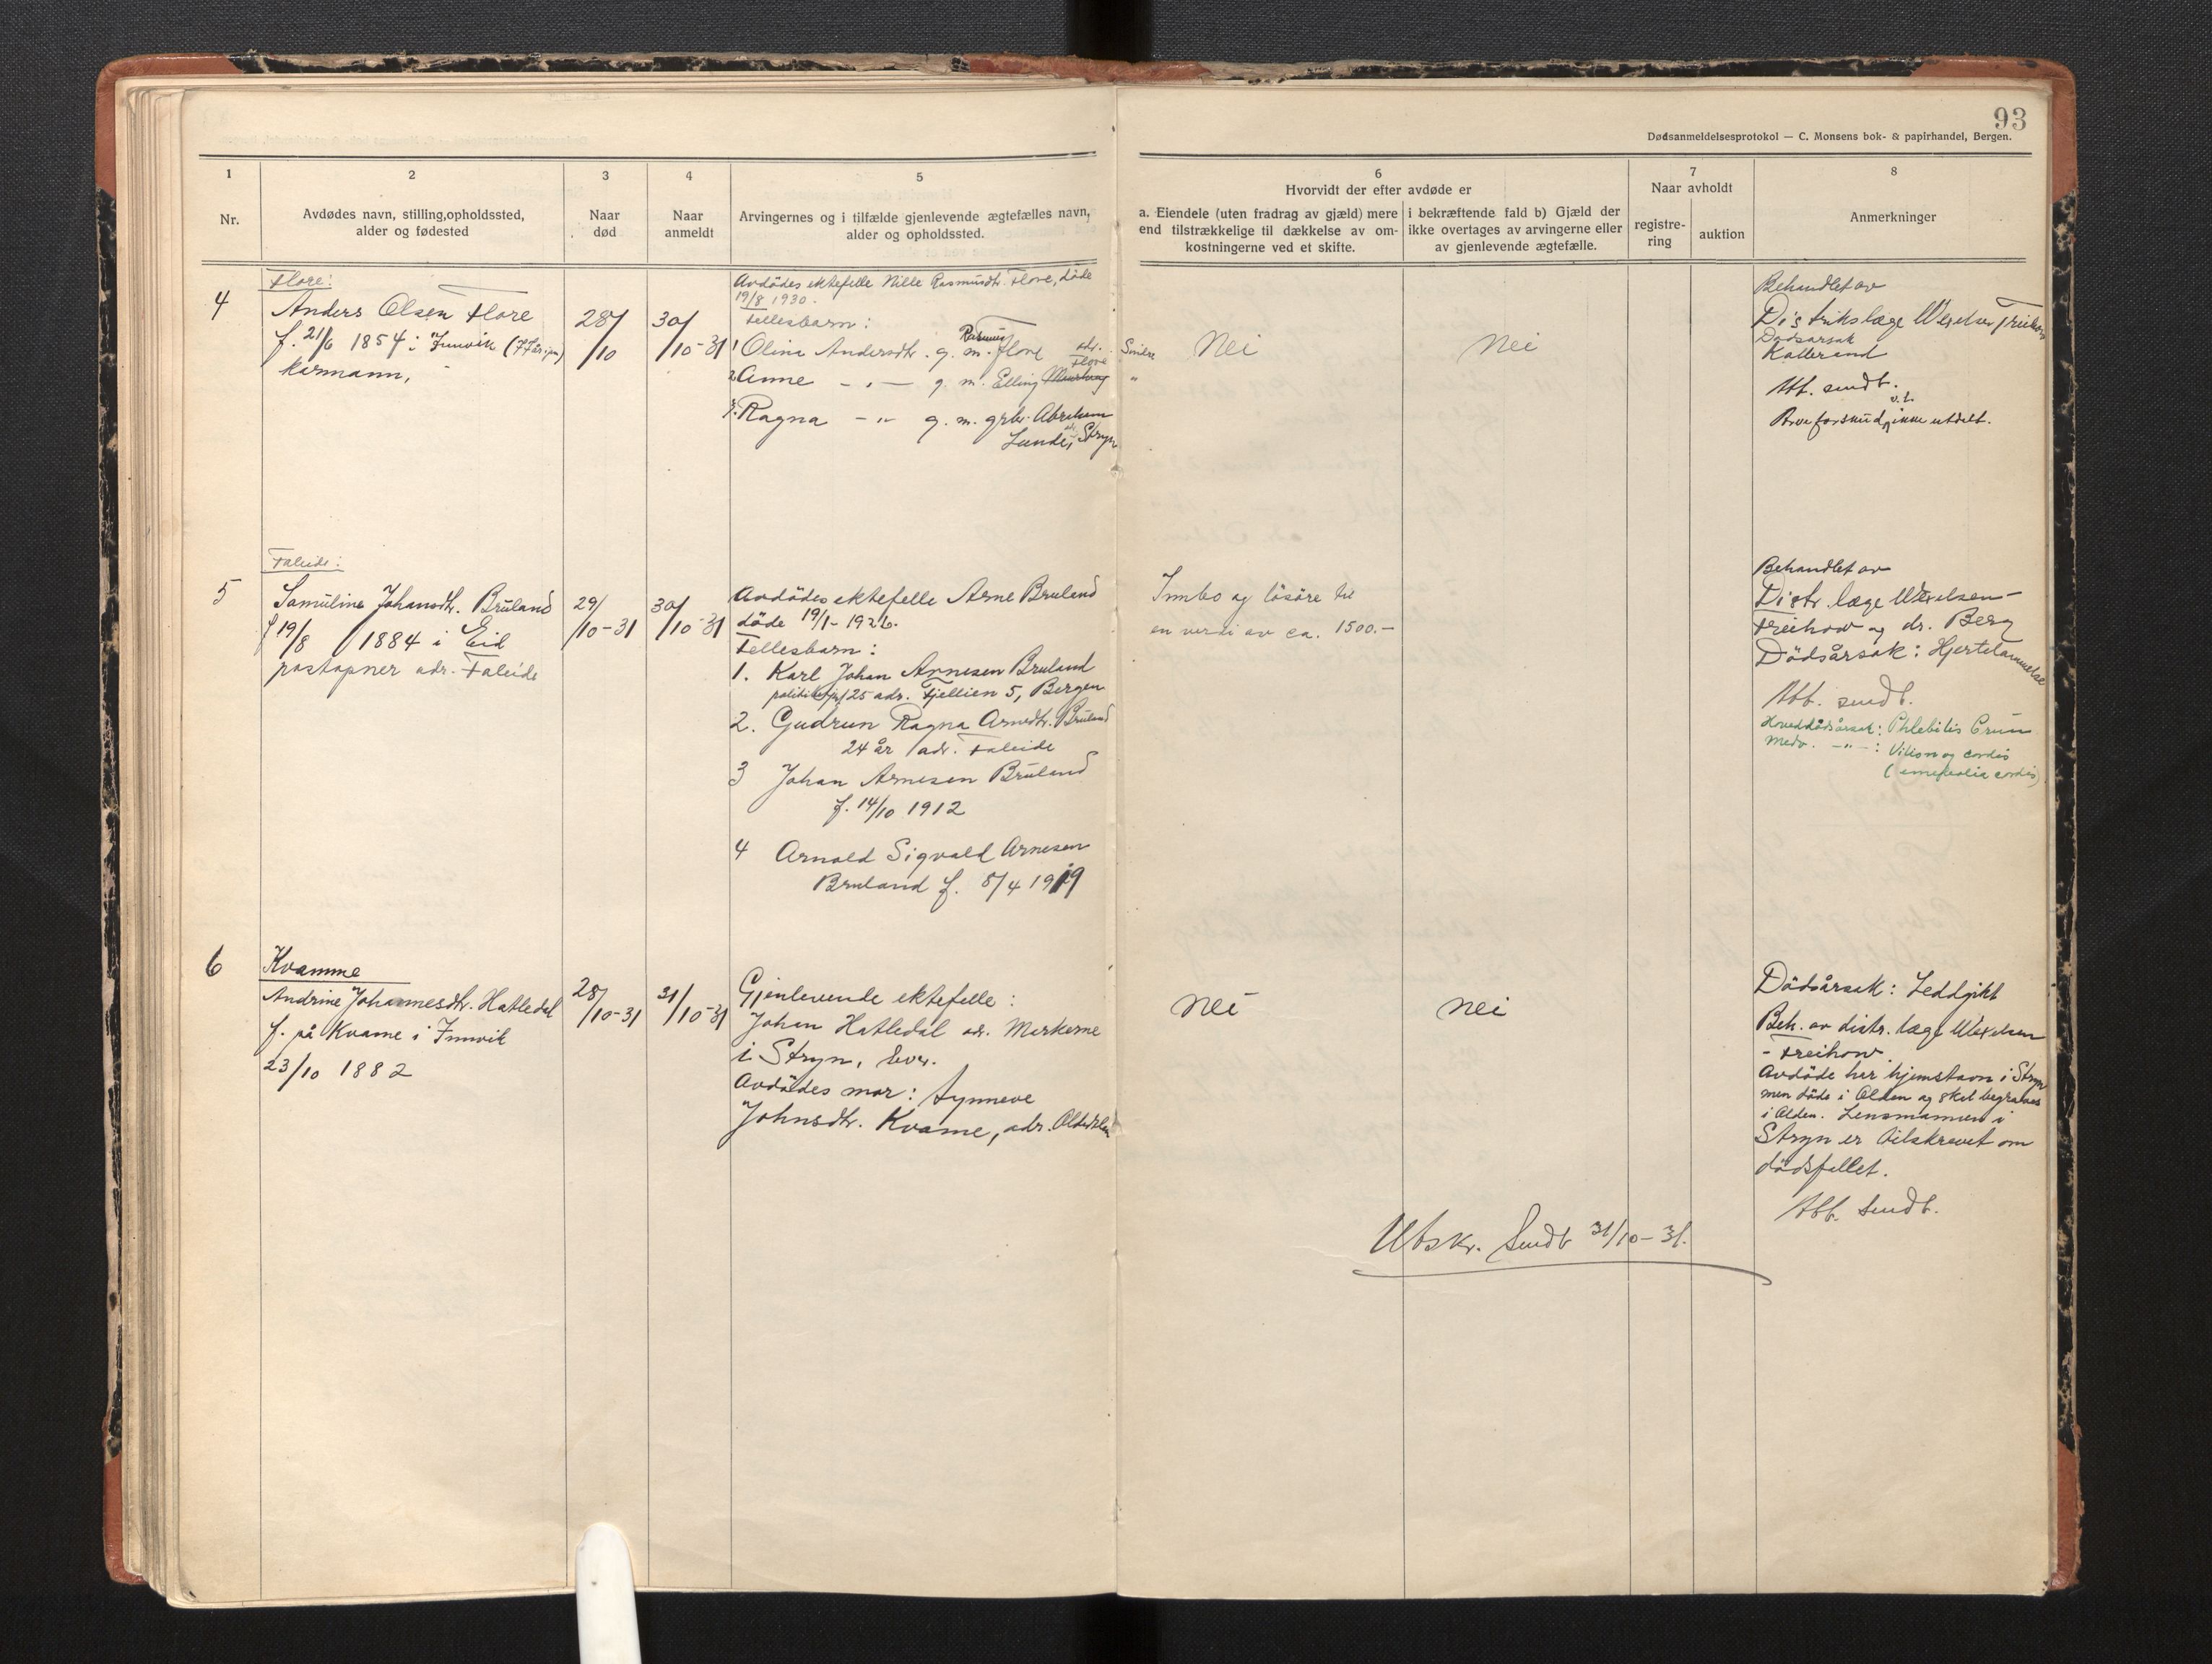 93
Dødsanmeldelsesprotokol — C. Monsens bok- & papirhandel, Bergen.
1
2
3
4
5
6
7
8
Nr.
Avdødes navn, stilling, opholdssted,
alder og fødested
Naar
død
Naar
anmeldt
Arvingernes og i tilfælde gjenlevende ægtefælles navn,
alder og opholdssted.
Hvorvidt der efter avdøde er
a. Eiendele (uten fradrag av gjæld) mere
end tilstrækkelige til dækkelse av om-
kostningerne ved et skifte.
i bekræftende fald b) Gjæld der
ikke overtages av arvingerne eller
av gjenlevende ægtefælle.
Naar avholdt
registre-
ring
auktion
Anmerkninger
4
Flore:
Anders Olsen Flore
f. 21/6 1854 i Innvik (77 år
kårmann,
28/
/10
30/
/10-31
Avdödes ektefelle Nille Rasmusdtr. Flore, döde
19/8 1930.
Fellesbarn:
1 Olina Andersdtr. g. m. Rasmus Flore adr. Flore
2 Anne — " — g. m. Elling
3. Ragna — " — g. m. grbr. Abraham
Lunde, adr. Stryn
Nei
Nei
Behandlet av
Distriktslæge Wexelsen Freihow
Dödsårsak
Kallbrand
Att. sendt.
Arveforskud v. t. ikke utdelt.
5
Faleide:
Samuline Johansdtr. Bruland
f 19/8 1884 i Eid
postopner adr. Faleide
29/
/10-31
30/
/10-31
Avdödes ektefelle Arne Bruland
döde 19/1-1926.
Fellesbarn:
1. Karl Johan Arnesen Bruland
25 adr. Fjellien 5, Bergen
2. Gudrun Ragna Arnedtr. Bruland
24 år adr. Faleide
3 Johan Arnesen Bruland
f. 14/10 1912
4 Arnold Sigvald Arnesen
Bruland f. 8/4 1919
Innbo og lösöre til
en verdi av ca. 1500.—
Behandlet av
Distr. læge Wexelsen-
Freihow og dr. Berg
Dödsårsak: Hjertelammelse
Att. sendt.
Hoveddödsårsak: Phlebitis Crur
Medv. —"—: Vitium og cordis
cordis)
6
Kvamme
Andrine Johannesdtr. Hatledal
f. på Kvame i Innvik
23/10 1882
28/
/10-31
31/
/10-31
Gjenlevende ektefelle:
Johan Hatledal adr. Markerne
i Stryn,
Avdödes mor: Synneve
Johnsdtr. Kvame, adr. Olden
Nei
Nei
Dödsårsak: Leddgikt
Beh. av distr. læge Wexelsen
- Freihow.
Avdöde har hjemstavn i Stryn
men döde i Olden og skal begraves
i Olden. Lensmannen i
Stryn er tilskrevet om
dödsfallet.
Att. sendt.
Utskr. Sendt 31/10-31.